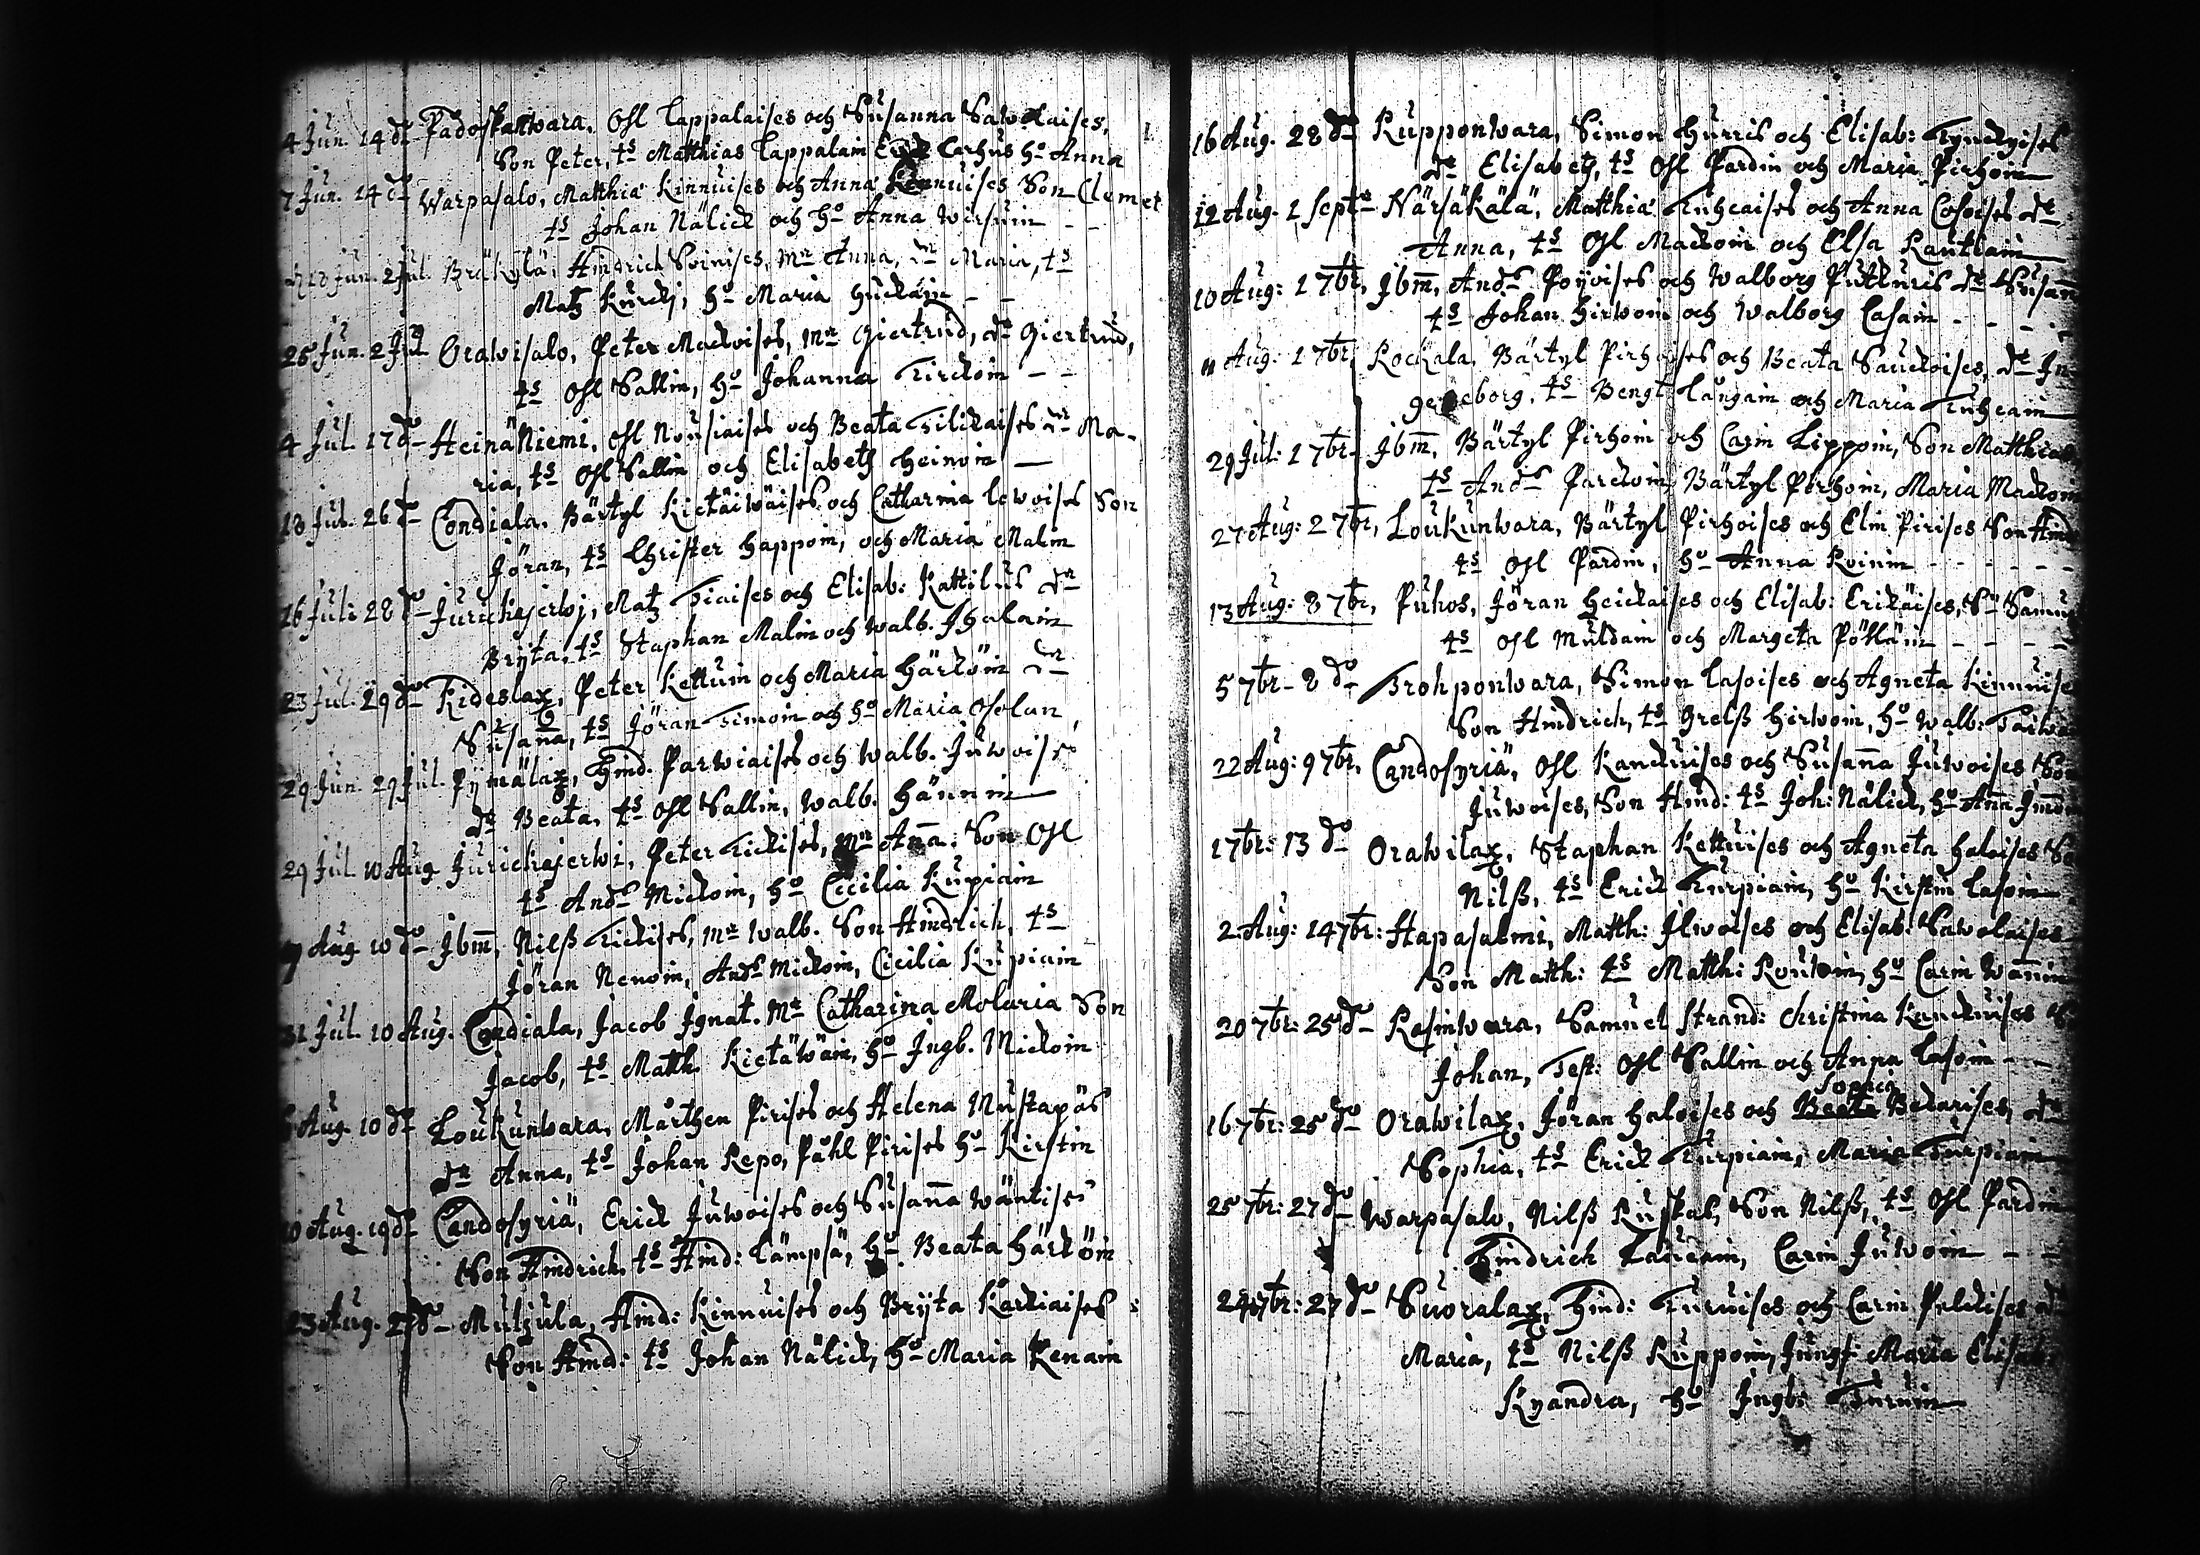 4 Jun. 14 do Padoskanwara, Ohl Lappalaises och Susanna Sawolaises,
Son Peter, ts Matthias Lappalain Carhus ho Anna
7 Jun. 14 do Warpasalo, Matthiæ Kinnuises och Anna Kinnuises Son Clemet
ts Johan Nälick och ho Anna
Jun. 2 Jul. Bräkylä, Hindrich Soinises, mr Anna, dr Maria, ts
Matz Kurcki, ho Maria Huckain
25 Jun. 2 Jul Orawisalo, Peter Mackoises, mr Giertrud, dr Giertrud,
ts Ohl Sallin, ho Johanna Tirckoin
4 Jul. 17 do Heinäniemi, Ohl Nousiaises och Beata Tilikaises dr Ma-
ria, ts Ohl Sallin och Elisabeth Heinoin
18 Jul. 26 do Condiala. Bärtyl Kietäwäises och Catharina Lewoises Son
Jöran, ts Christer Happoin, och Maria Malin
16 Jul: 28 do Jurichajerwj, Matz Tiaises och Elisab: Kattilus dr
Bryta, ts Staphan Malin och Walb. Ihalain
23 Jul. 29 do Kideslax, Peter Kettuin och Maria Härköin dr
Susaña, ts Jöran Timoin och ho Maria Oholan
29 Jun. 29 Jul. Pymälax, Hind. Parwiaises och Walb. Juwoises
dr Beata, ts Ohl Sallin, Walb. Hännin
29 Jul. 10 Aug Jurichajerwi, Peter Tickises, mr Aña: Son Ohl
ts Ands Mickoin, ho Cicilia Kupiain
Aug 10 do Ibm, Nilß Tickises, mr Walb. Son Hindrich, ts
Jöran Nenoin, Ands Mickoin, Cicilia Kupiain
31 Jul. 10 Aug. Condiala, Jacob Ignat. mr Catharina Molaria Son
Jacob, ts Matth. Kietäwäin, ho Ingb. Mickoin
Aug. 10 do Loukunwara, Mårthen Pirises och Helena Mustapäs
dr Anna, ts Johan Repo, Påhl Pirises ho Kirstin
Aug. 19 do Candosyriä, Erick Juwoises och Susaña Wäntises
Son Hindrich. ts Hind: Lämpsä, ho Beata Härköin
23 Aug. do Muljula, Hind: Kinnuises och Bryta Karkiaises
Son Hind: ts Johan Nälick, ho Maria Renain
16 Aug. 28 do Rupponwara, Simon Hurris och Elisab: Tynckyises
dr Elisabeth, ts Ohl Pardin och Maria Pirhoin
12 Aug. 1 Septr Närsäkälä, Matthiæ Tuhcaises och Anna Cosoises dr
Anna, ts Ohl Mackoin och Elsa Rautiain
10 Aug: 1 7br, Ibm, Ands Poyoises och Walborg Putkuris dr Susañ
ts Johan Hirwoin och Walborg Casain
11 Aug: 1 7br, Rockala, Bärtyl Pirhoises och Beata Sauckoises, dr In
geborg, ts Bengt Långain och Maria Tuhcain
29 Jul: 1 7br. Ibm, Bärtyl Pirhoin och Carin Lippoin, Son Matthias
ts Ands Parckoin, Bärtyl Pirhoin, Maria Mackoin
27 Aug: 2 7br, Loukunwara, Bärtyl Pirhoises och Elin Pirises Son Hind
ts Ohl Pardin, ho Anna Roinin
13 Aug: 8 7br, Puhos, Jöran Heickaises och Elisab: Erikäises, Sn Samu
ts Ohl Muldain och Margeta Pöttäin
5 7br. 8 do Trohponwara, Simon Lasoises och Agneta Kinnuise
Son Hindrich, ts Grelß Hirwoin, ho Walb:
22 Aug: 9 7br, Candosyriä, Ohl Kanckuises och Susaña Juwoises Son
Juwoises, Son Hind: ts Joh: Nälick, ho Aña
1 7br: 13 do Orawilax, Staphan Kettuises och Agneta Haloises
Nilß, ts Erick Turpiain, ho Kirstin Lasoin
2 Aug: 14 7br: Hapasalmi, Matth: Ilwoises och Elisab: Sawolaises
Son Matth: ts Matth: Rouwoin, ho Carin Wäñin
20 7br: 25 do Rasinwara, Samuel Strand: Christina Kanckuises
Johan, Test: Ohl Sallin och Anna Lasoin
Sophia
16 7br: 25 do Orawilax, Jöran Haloises och Beata Bedarises, dr
Sophia, ts Erick Turpiain, Maria Turpiain
25 7br: 27 do Warpasalo, Nilß Ruskas, Son Nilß, ts Ohl Pardin
Hindrich Laucain, Carin Juwoin
24 7br: 27 do Suoralax, Hind: Turuises och Carin Pelckises
Maria, ts Nilß Ruppoin, Jungf: Maria Elisab:
Kyandra, ho Ingb: Turuin